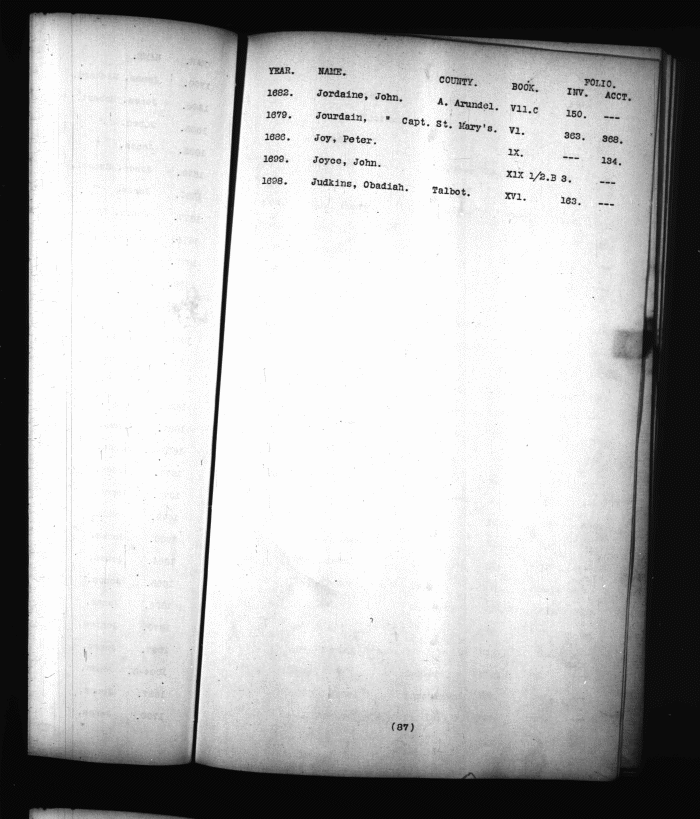 YEAR. NAME. COUNTY. BOOK. FOLIO.
INV. ACCT.
1682. Jordaine, John. A. Arundel. V11.C 150. ---
1679. Jourdain, " Capt. St. Mary's. V1. 363. 368.
1686. Joy, Peter. 1X. --- 134.
1699. Joyce, John. X1X 1/2.B 3. ---
1698. Judkins, Obadiah. Talbot. XV1. 163. ---
(87)